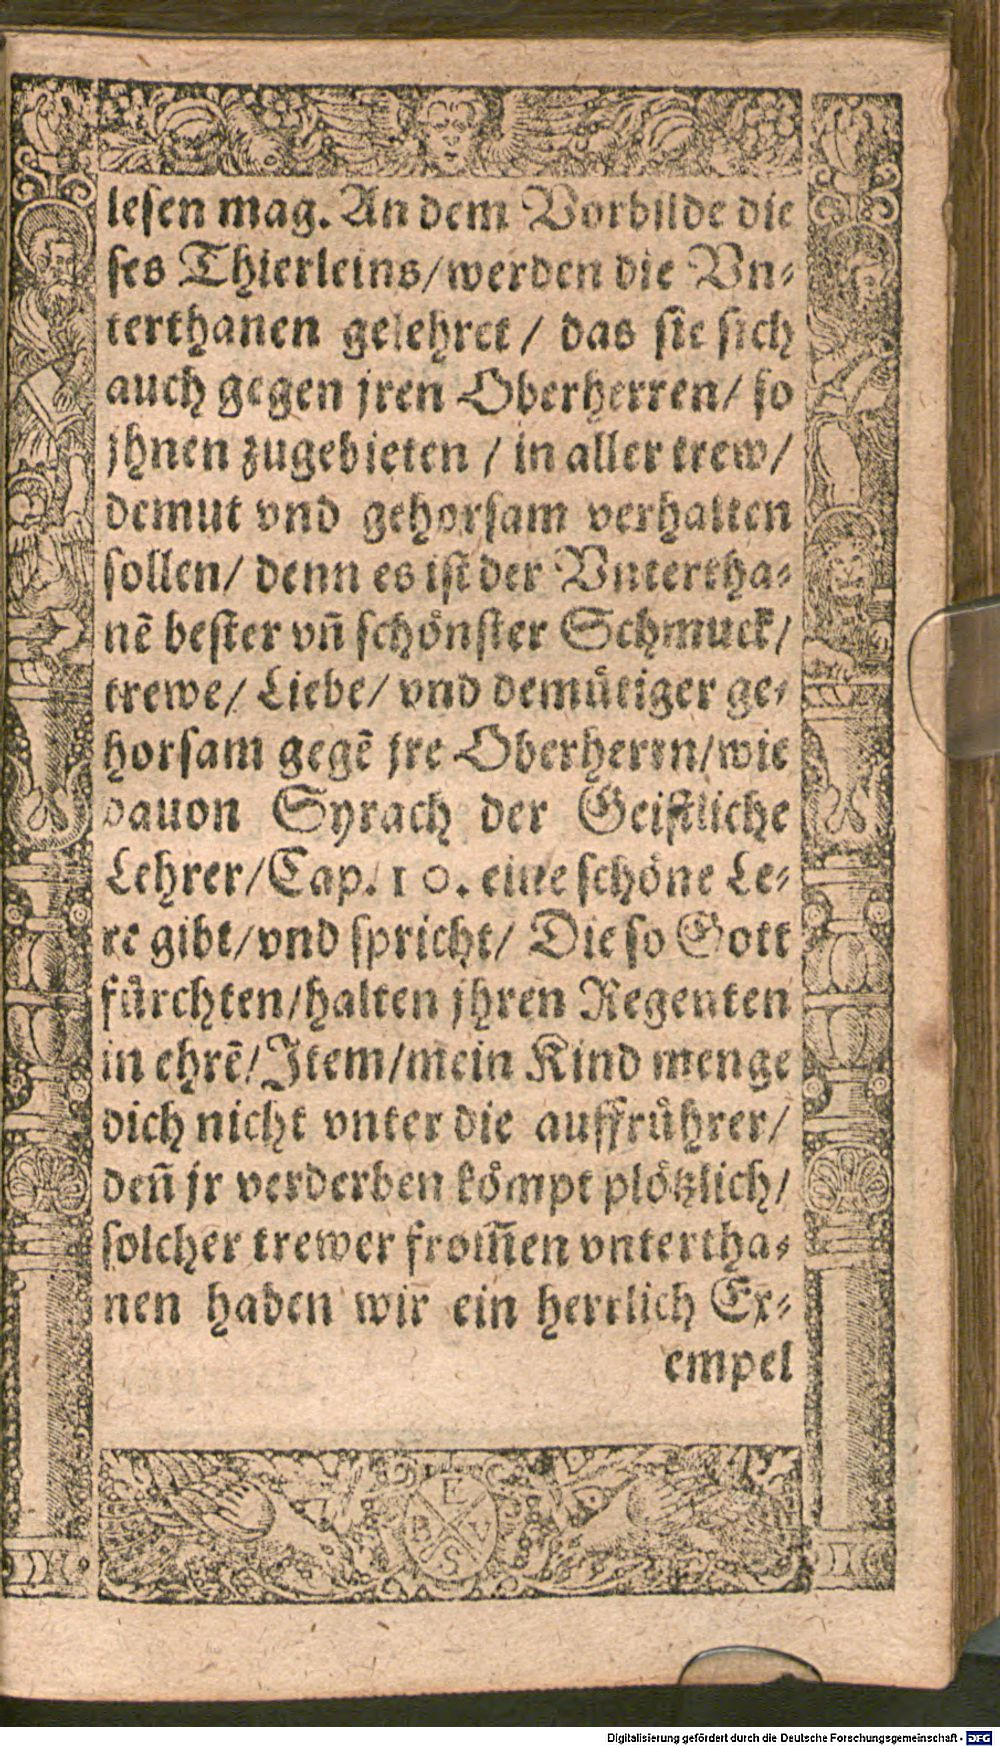 leſen mag. An dem Vorbilde die
ſes Thierleins/werden die Vn⸗
terthanen gelehret / das ſie ſich
auch gegen jren Oberherren/ ſo
jhnen zugebieten / in aller trew/
demut vnd gehorſam verhalten
ſollen/ denn es iſt der Vntertha⸗
nẽ beſter vñ ſchoͤnſter Schmuck/
trewe/ Liebe/ vnd demuͤtiger ge⸗
horſam gegẽ jre Oberherrn/wie
dauon Syrach der Geiſtliche
Lehrer/Cap. 10. eine ſchoͤne Le⸗
re gibt/vnd ſpricht/ Die ſo Gott
fuͤrchten/halten jhren Regenten
in ehrẽ/Item/mein Kind menge
dich nicht vnter die auffruͤhrer/
deñ jr verderben koͤmpt ploͤtzlich/
ſolcher trewer from̃en vntertha⸗
nen haben wir ein herrlich Ex⸗
empel
E
B V
S
Digitalisierung gefördert durch die Deutsche Forschungsgemeinschaft - DFG